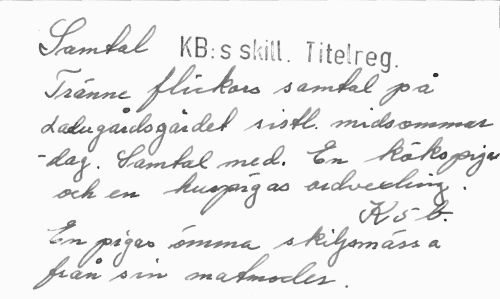 Samtal KB:s skill. Titelreg.
Tränne flickors samtal på
Ladugårdsgärdet sistl. midsommar
-dag. Samtal med. En kökspigas
och en huspigas ordvexling.
K 5 b.
En pigas ömma skilsmässa
från sin matmoder.